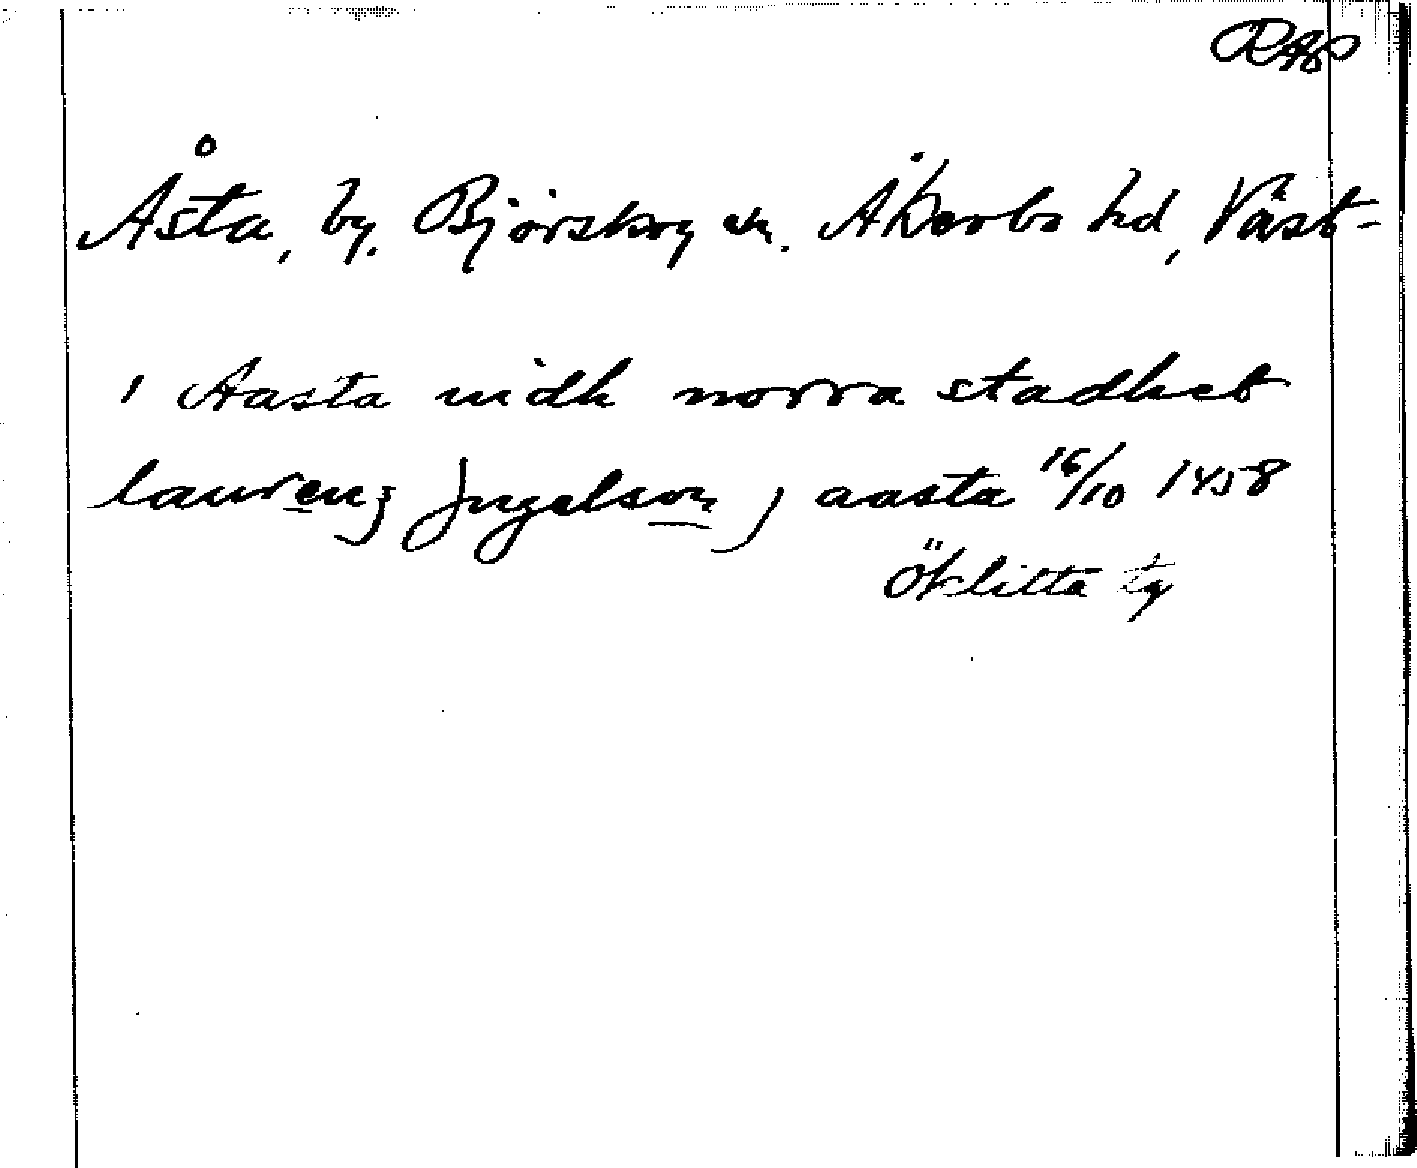 RAP
Åsta, by. Björskog sn. Åkerbo hd, Väst-
i Aasta widh norra stadhet
laurenz Jngelson j aasta 16/10 1458
Öklitta tg